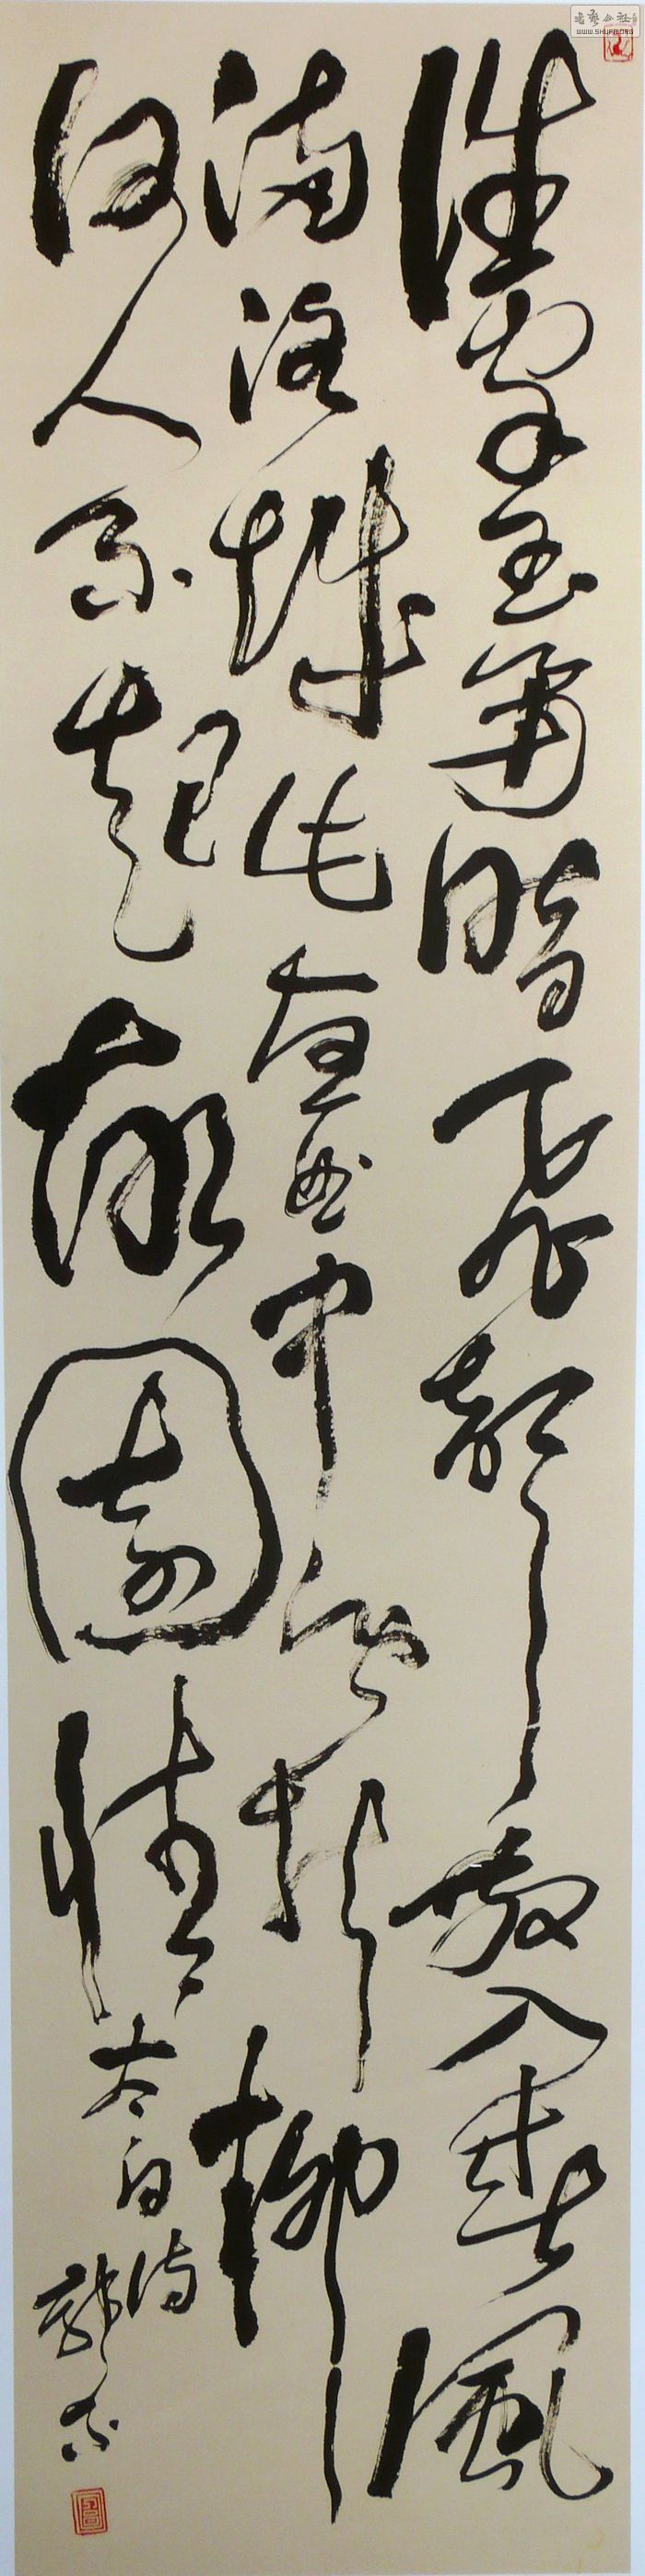 誰家玉笛暗飛聲散入春風
滿洛城此夜曲中聞折柳
何人不起故園情
太白詩
WWW.SHUFA.ORG